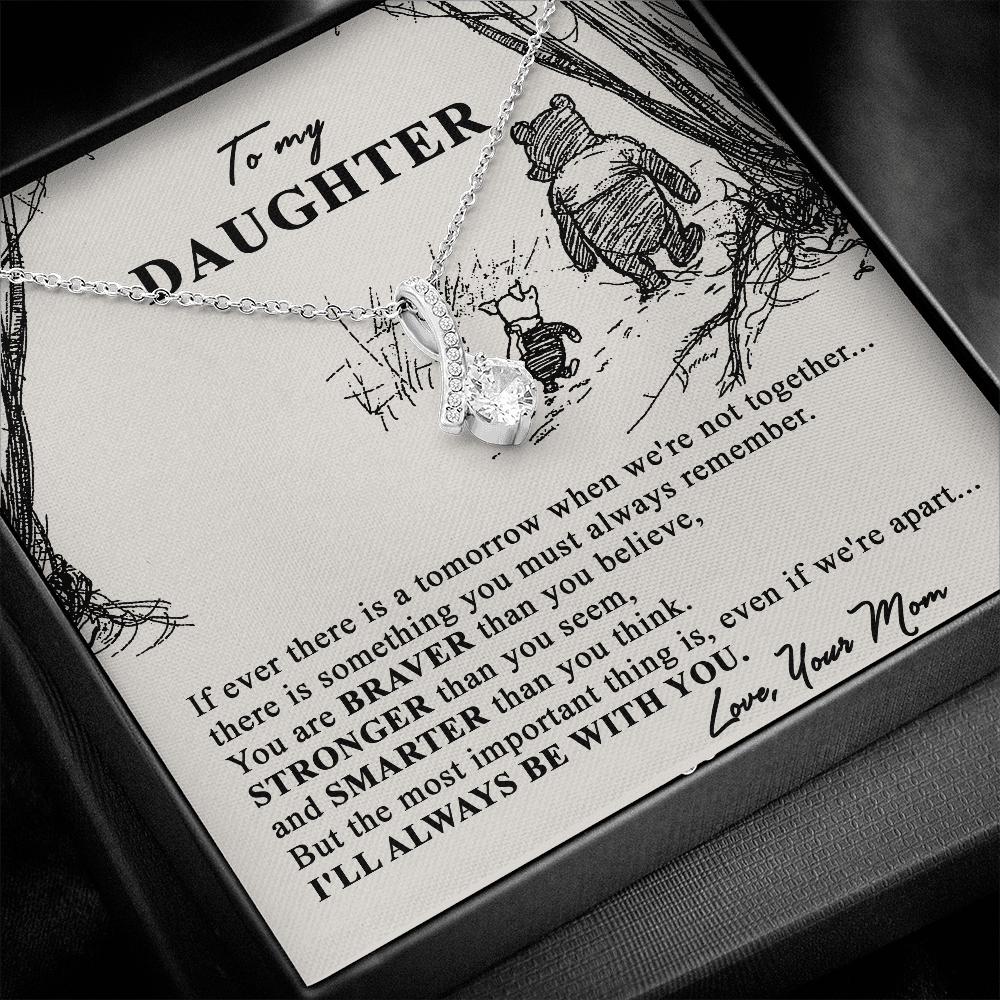 To my
DAUGHTER
If ever there is a tomorrow when we're not together...
there is something you must always remember.
You are BRAVER than you believe,
STRONGER than you seem,
and SMARTER than you think.
But the most important thing is, even if we're apart...
I'LL ALWAYS BE WITH YOU.
Love, Your Mom